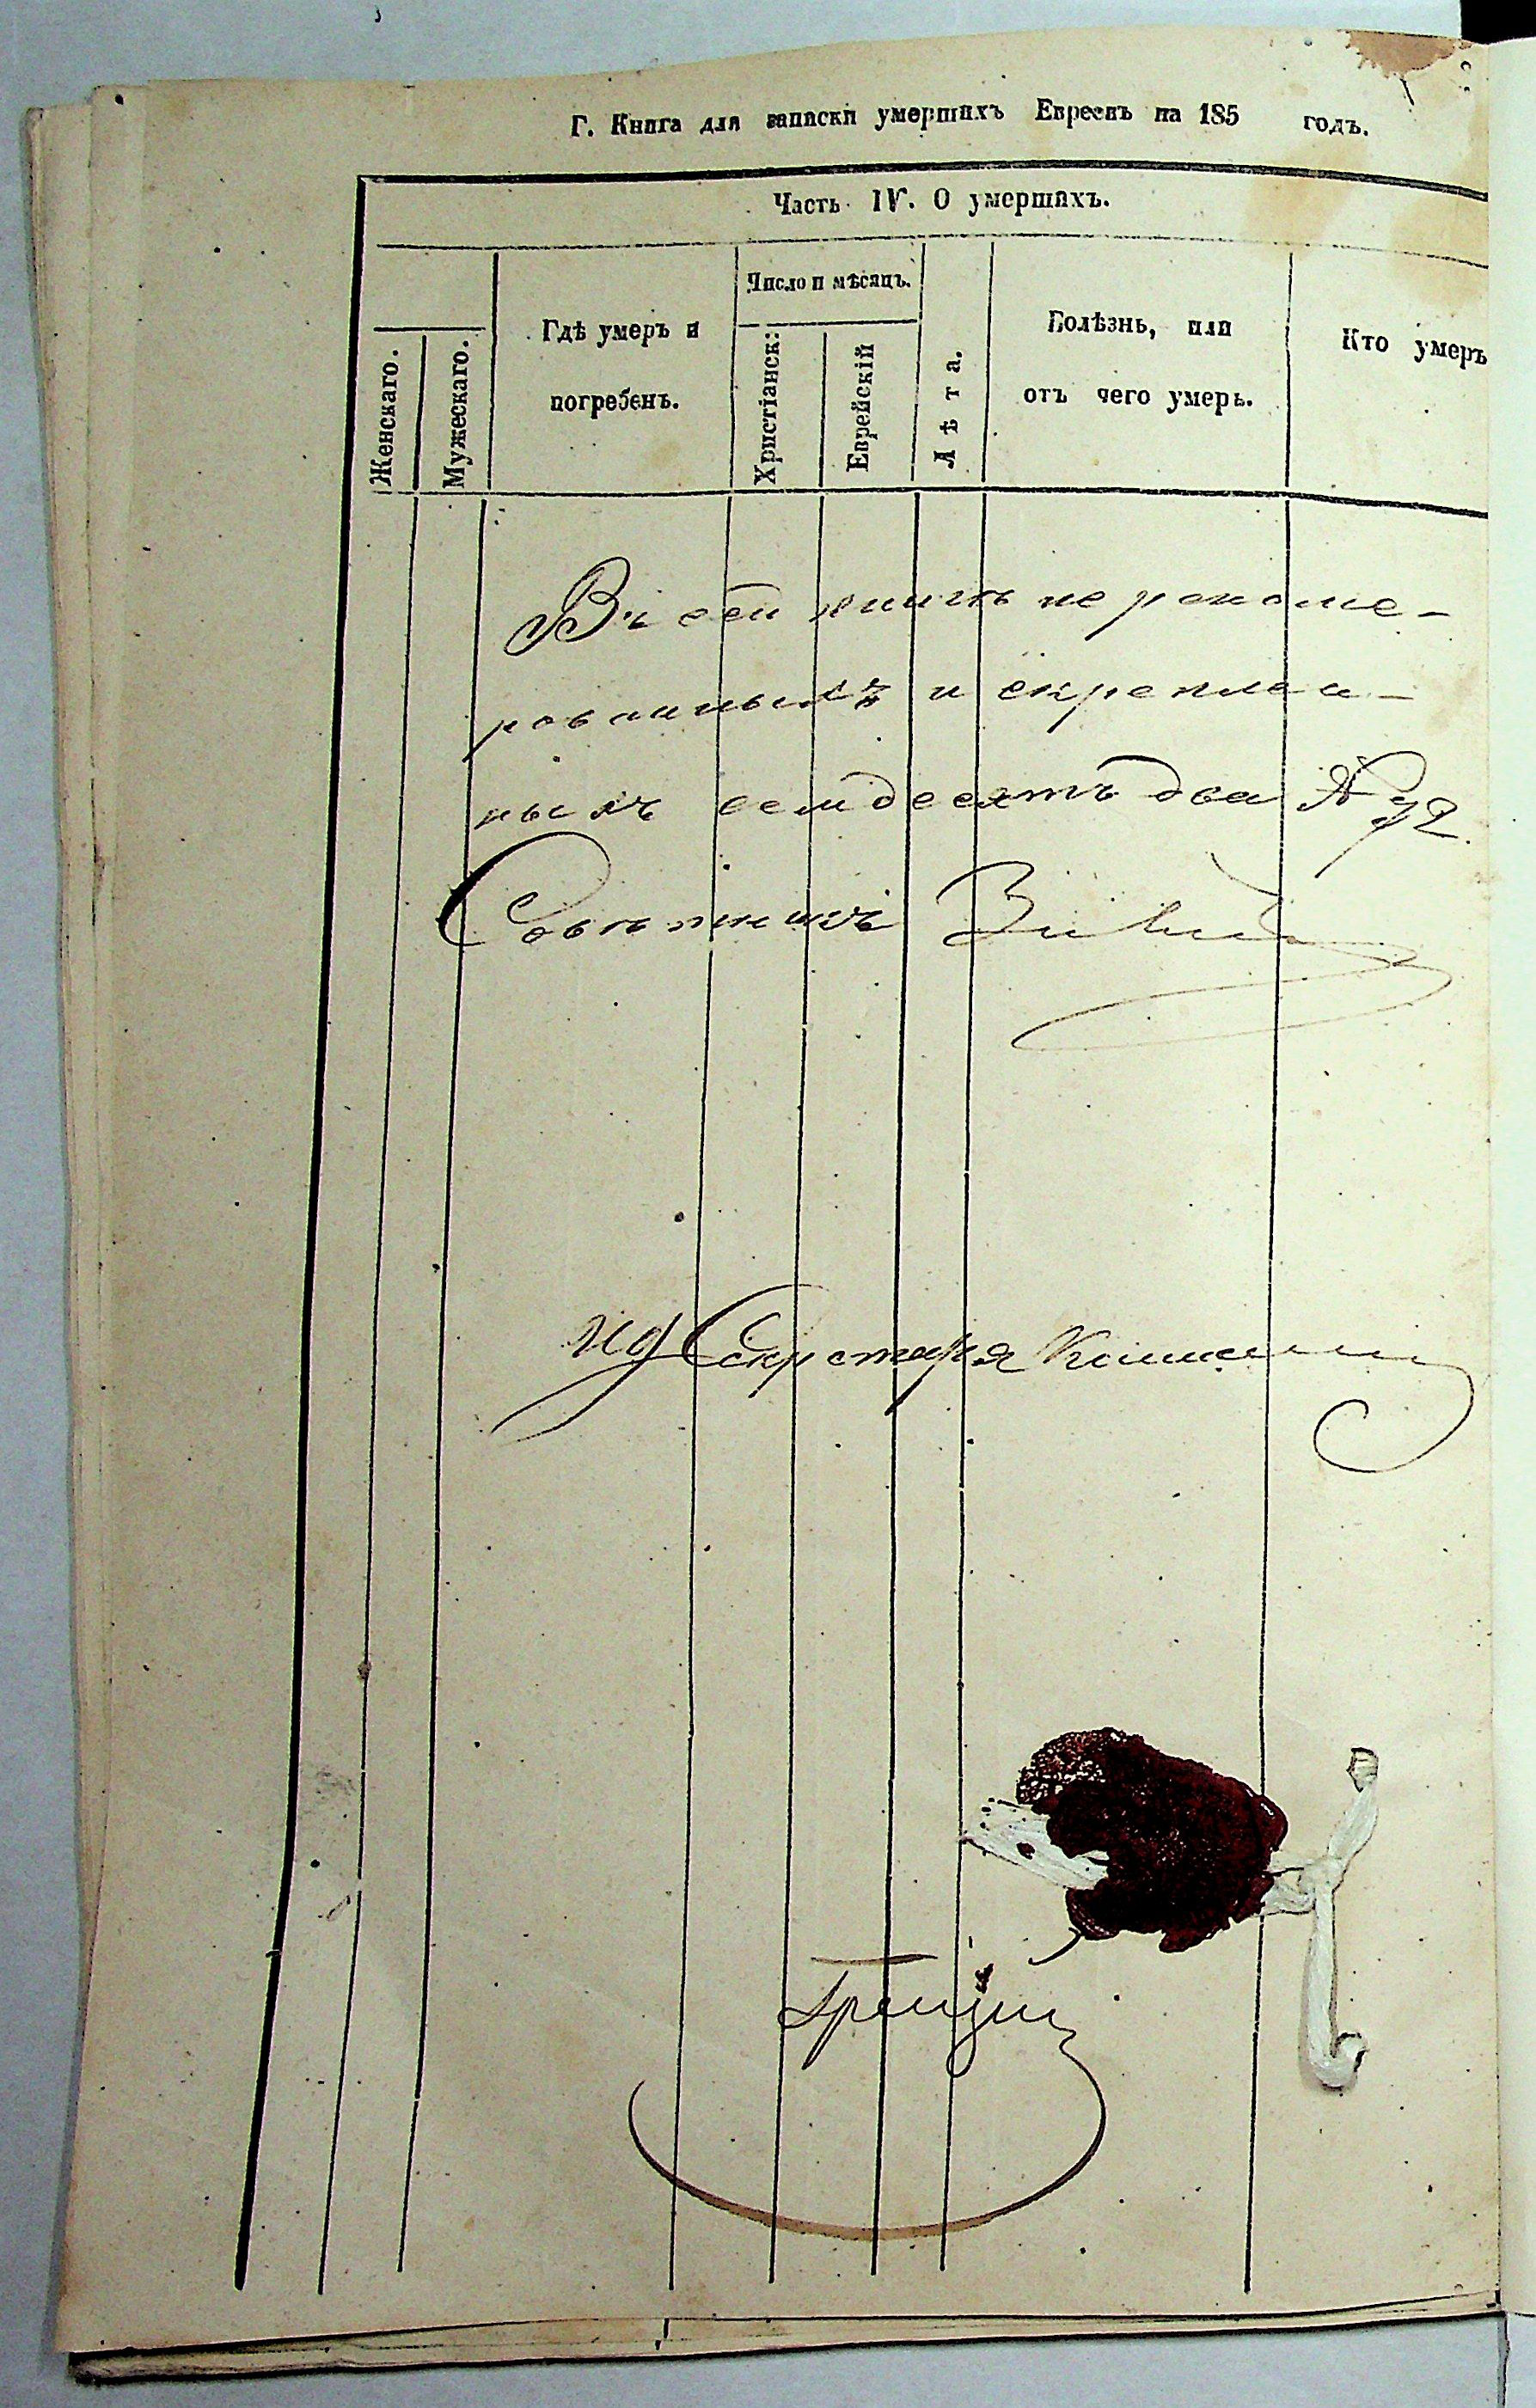 Г. Книга для записки умершихъ Евреевъ на 185 годъ.
Часть IV. О умершихъ.
Женскаго.
Мужескаго.
Гдѣ умеръ и
погребенъ.
Число и мѣсяцъ.
Христіанск:
Еврейскій
Лѣта.
Болѣзнь, или
отъ чего умеръ.
Кто умеръ
Въ сей книгѣ перенуме-
рованныхъ и скреплен-
ныхъ семдесятъ два № 72
Совѣтникъ
ИД Секретаря